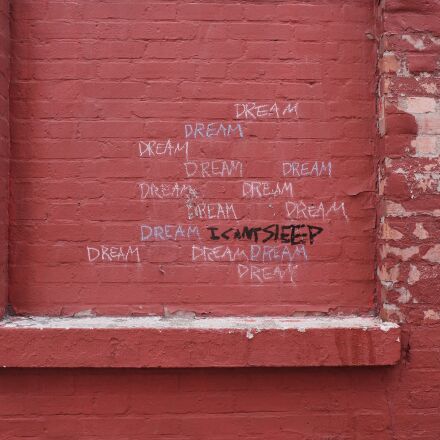 DREAM
DREAM
DREAM
DREAM DREAM
DREAM DREAM
DREAM DREAM
DREAM I CANT SLEEP
DREAM DREAM DREAM
DREAM